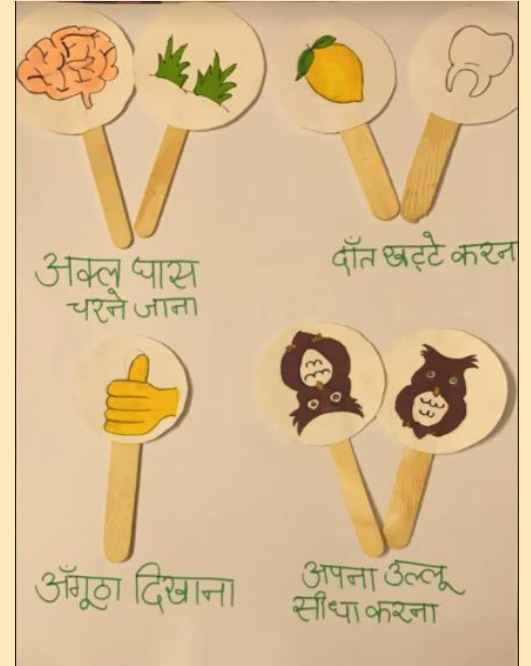 अक्ल घास
चरने जाना
दाँत खट्टे करन
अँगूठा दिखाना
अपना उल्लू
सीधा करना